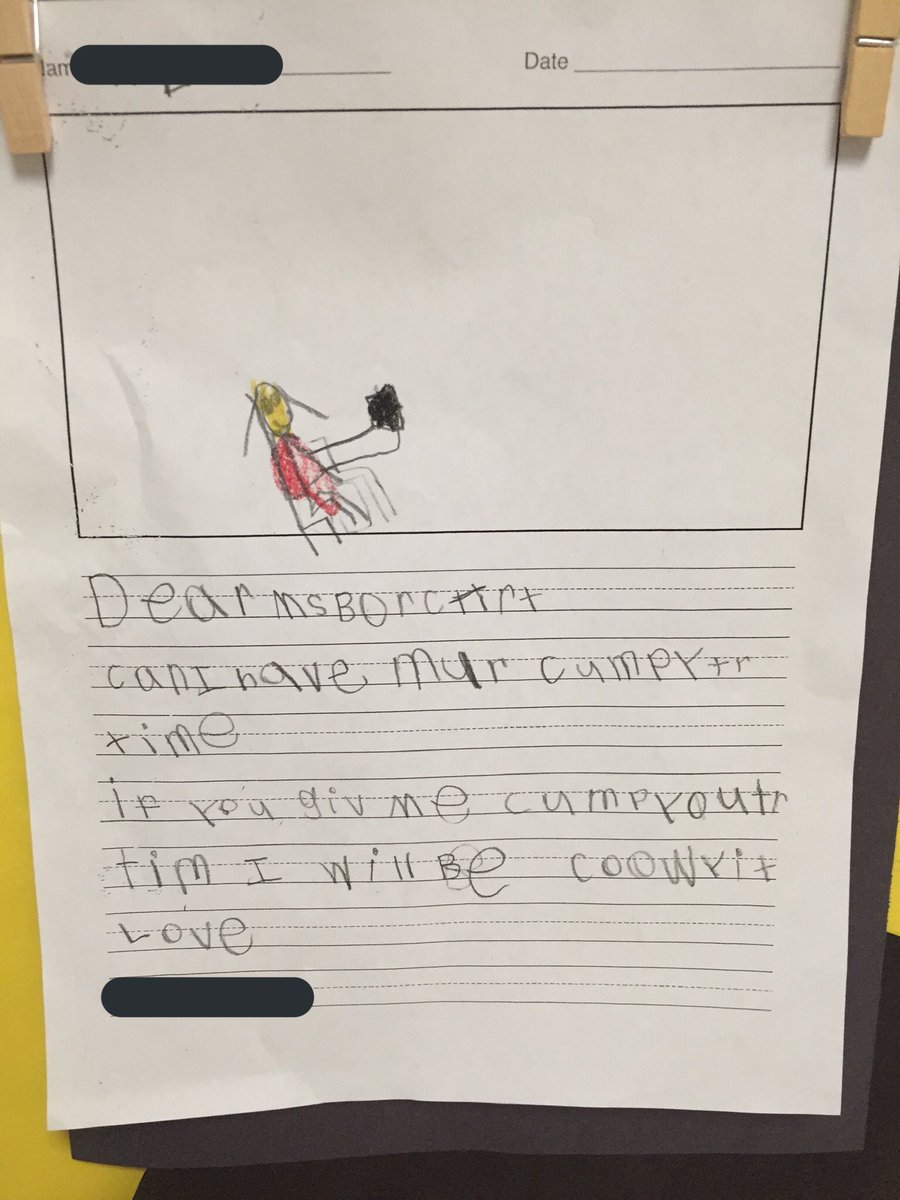 Date
Dear msBorcttrt
canI have mur cumpytr
time
if you giv me cumpyoutr
tim I will Be coowyit
Love